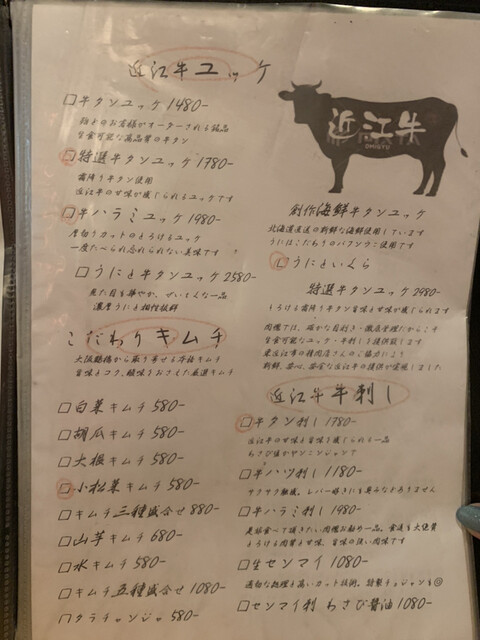 近江牛ユッケ
□牛タンユッケ 1480-
殆どのお客様がオーダーされる絶品
生食可能な高品質の牛タン
□特選牛タンユッケ 1780-
霜降り牛タン使用
近江牛の甘味が感じられるユッケです
□牛ハラミユッケ 1980-
厚切りカットのとろけるユッケ
一度たべられ忘れられない美味です
□うにと牛タンユッケ 2580-
見た目も華やか、ぜいたくな一品
濃厚うにと相性抜群
こだわりキムチ
大阪鶴橋から取り寄せる本格キムチ
旨味とコク、酸味をおさえた厳選キムチ
□白菜キムチ 580-
□胡瓜キムチ 580-
□大根キムチ 580-
□小松菜キムチ 580-
□キムチ三種盛合せ 880-
□山芋キムチ 680-
□水キムチ 580-
□キムチ五種盛合せ 1080-
□タラチャンジャ 580-
近江牛
OHMIGYU
創作海鮮牛タンユッケ
北海道直送の新鮮な海鮮使用しています
うにはこだわりのバフンウニ使用です
□うにといくら
特選牛タンユッケ 2980-
とろける霜降り牛タン旨味と甘味が感じられます
肉鑑では、確かな目利き・徹底管理だからこそ
生食可能なユッケ・牛刺しを提供致します
東近江市の精肉店さんのご協力により
新鮮、安心、安全な近江牛の提供が実現しました
近江牛牛刺し
□牛タン刺し 1780-
近江牛の甘味と旨味を感じられる一品
わさび塩かヤンニンジャンで
□牛ハツ刺し 1180-
サクサク触感、レバー好きにも臭みなどありません
□牛ハラミ刺し 1980-
是非食べて頂きたい肉鑑お勧め一品、食通も大絶賛
とろける肉質と甘味、旨味の強い肉味です
□生センマイ 1080-
適切な処理と高いカット技術、特製チョジャンも㊝
□センマイ刺し わさび醤油 1080-